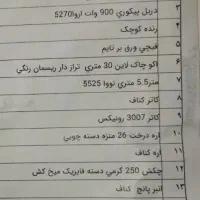 ۳ دریل پیکوری 900 وات اروا5270
۴ رنده کوچک
۵ قیچی ورق بر تایم
۶ اکو چاک لاین 30 متری تراز دار ریسمان رنگی
۷ متر5.5 متری نووا 5525
۸ کاتر کناف
۹ کاتر 3007 رونیکس
۱۰ اره درخت 26 منزه دسته چوبی
۱۱ اره کناف
۱۲ چکش 250 گرمی دسته فایبرگ میخ کش
۱۳ انبر پانچ کناف